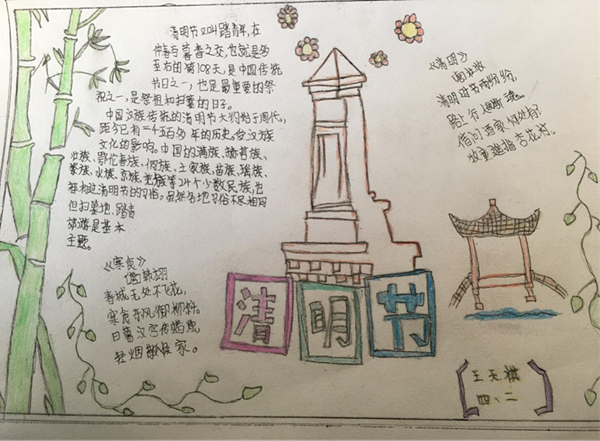 清明节又叫踏青节,在
仲春与暮春之交,也就是冬
至后的第108天,是中国传统
节日之一,也是最重要的祭
祀之一,是祭祖和扫墓的日子。
中国汉族传统的清明节大约始于周代,
距今已有二千五百多年的历史。受汉族
文化的影响,中国的满族、赫哲族、
壮族、鄂伦春族、侗族、土家族、苗族、瑶族、
黎族、水族、京族、羌族等24个少数民族,也
都有过清明节的习俗。虽然各地习俗不尽相同
但扫墓、踏青
郊游是基本
主题。
《寒食》
唐 韩翃
春城无处不飞花,
寒食东风御柳斜。
日暮汉宫传蜡烛,
轻烟散 侯家。
《清明》
唐 杜牧
清明时节雨纷纷,
路上行人欲断魂。
借问酒家何处有?
牧童遥指杏花村。
清明节
王天
四、二